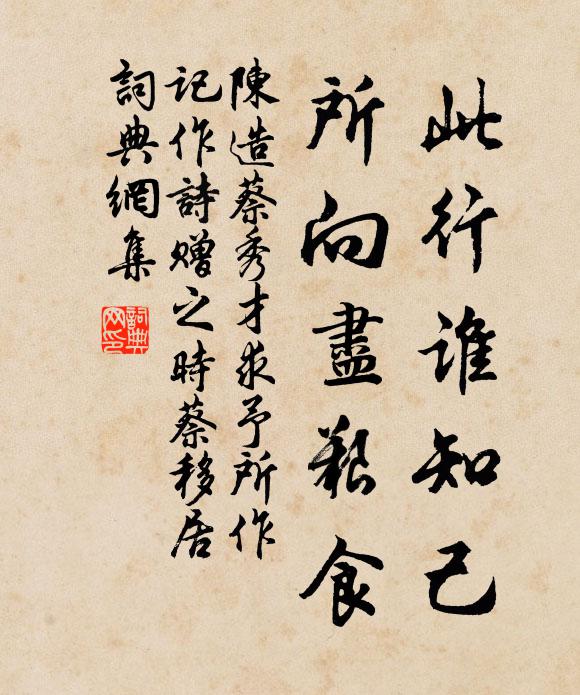 此行誰知己
所向盡艱食
陳造蔡秀才求予所作
記作詩贈之時蔡移居
詞典網集
詞典
网印